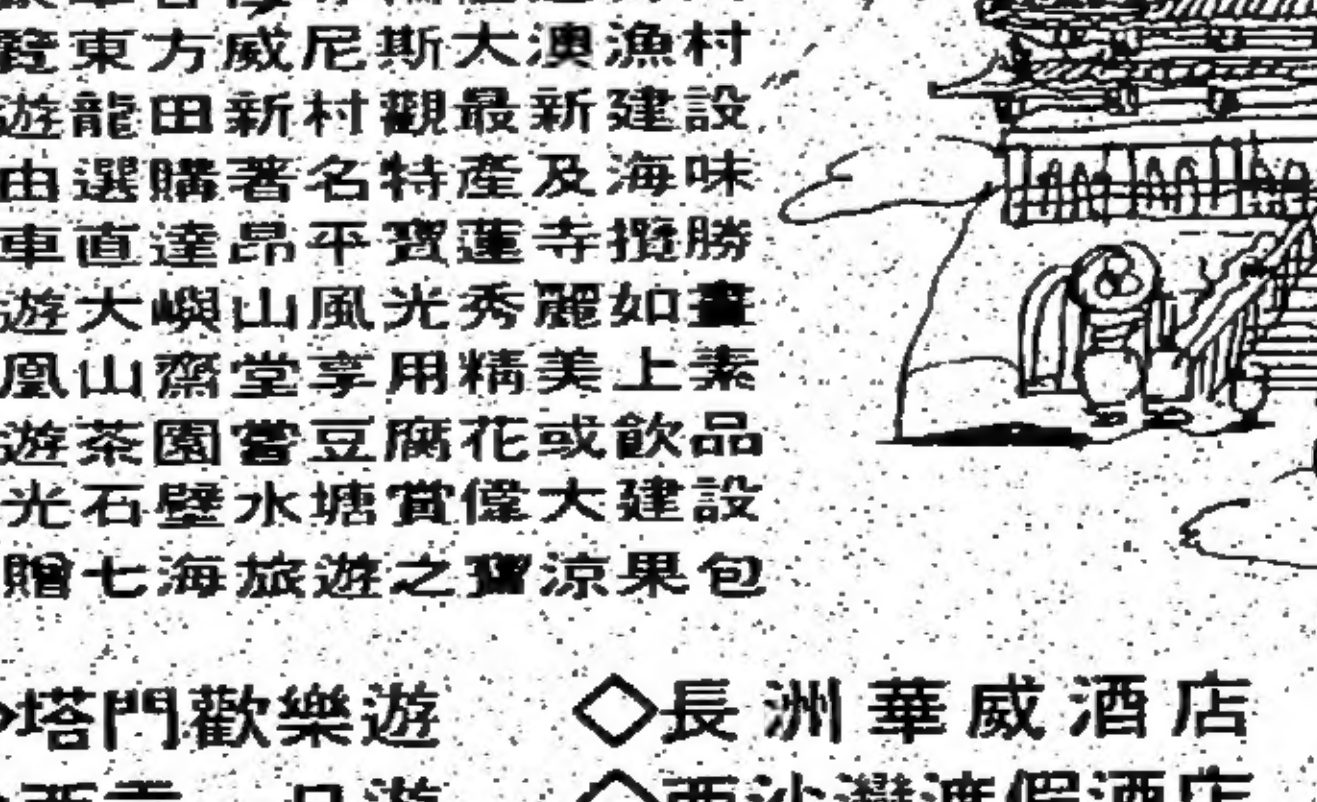 覽東方威尼斯太澳漁村
遊龍田新村觀最新建設
由選購著名特產及海味
車直達昂平寶蓮寺攬勝
遊大嶼山風光秀麗如畫
凰山齋堂享用精美上素
遊茶園嘗豆腐花或飲品
光石壁水塘賞偉大建設
贈七海旅遊之寶涼果包
◇塔門歡樂遊 ◇長洲華威酒店
一日遊 ◇西沙灣渡假酒店